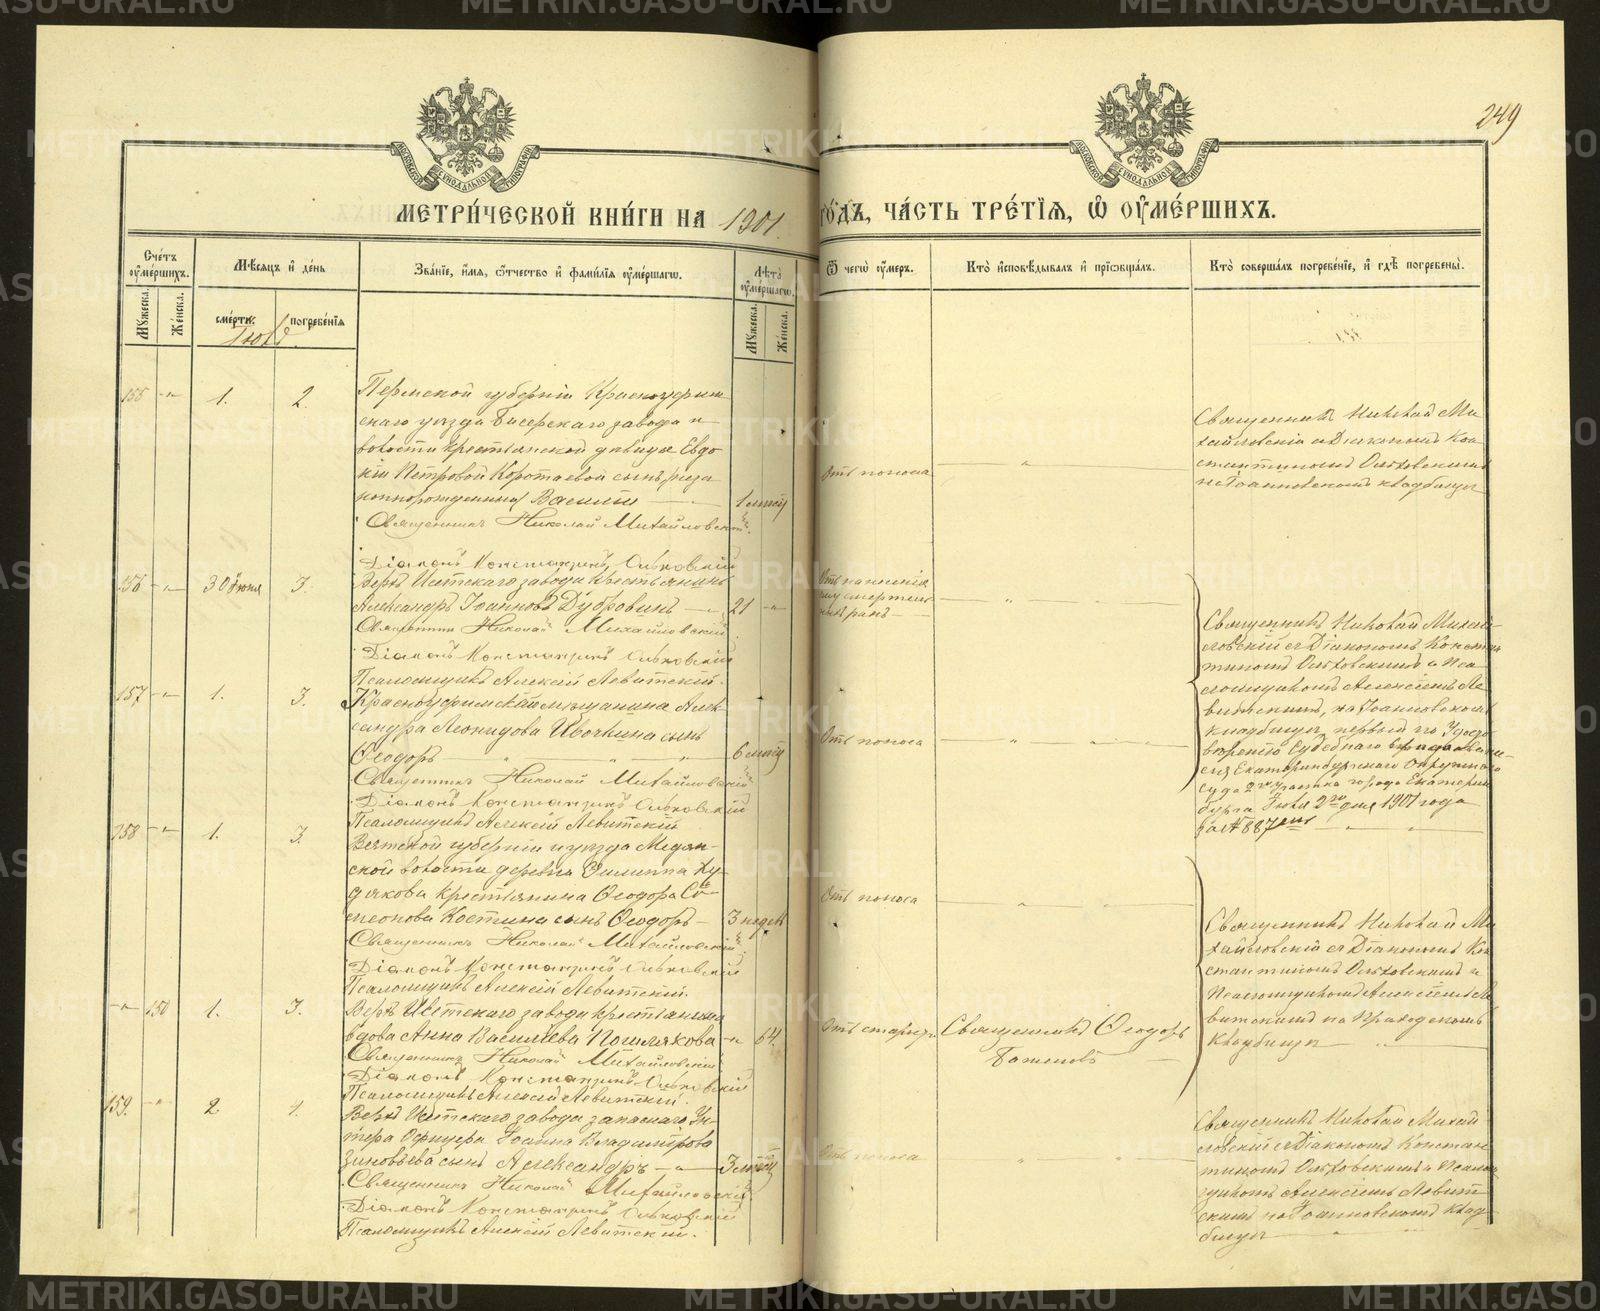 249
МОСКОВСКОЙ СѴНОДАЛЬНОЙ ТИПОГРАФІИ
МОСКОВСКОЙ СѴНОДАЛЬНОЙ ТИПОГРАФІИ
МЕТРИ́ЧЕСКОЙ КНИ́ГИ НА 1901
ГО́ДЪ, ЧА́СТЬ ТРЕ́ТІЯ, Ѡ҆ ОУ҆МЕ́РШИХЪ.
Сче́тъ оу҆ме́ршихъ.
Мꙋжеска.
Же́нска.
Мѣ́сяцъ и҆ де́нь
сме́рти.
погребе́нїя
Іюль
Зва́нїе, и҆́мя, ѻ҆́тчество и҆ фами́лїя оу҆ме́ршагѡ.
Лѣ́та оу҆ме́ршагѡ.
Мꙋжеска.
Же́нска.
Ѿ чегѡ̀ оу҆́меръ.
Кто̀ и҆сповѣ́дывалъ и҆ прїѡбща́лъ.
Кто̀ соверша́лъ погребе́нїе, и҆ гдѣ̀ погребены̀.
155 -"- 1. 2.
Пермской губерніи Красноуфим-
скаго уѣзда Бисерскаго завода и
волости крестьянской дѣвицы Евдо
кіи Петровой Коротаевой сынъ неза
коннорожденный Василій
1 мѣсяц
Священникъ Николай Михайловскій
Діаконъ Константинъ Ольховскій
Отъ поноса
Священникъ Николай Ми-
хайловскій съ Діакономъ Кон-
стантиномъ Ольховскимъ
на Іоанновскомъ кладбищѣ
156 -"- 30 Іюня 3.
Верхъ Исетскаго завода крестьянинъ
Александръ Іоанновъ Дубровинъ
21
Священникъ Николай Михайловскій
Діаконъ Константинъ Ольховскій
Псаломщикъ Алексій Левитскій.
Отъ нанесенія
ему смертель
ныхъ ранъ
Священникъ Николай Михай-
ловскій съ Діакономъ Констан
тиномъ Ольховскимъ и Пса-
ломщикомъ Алексіемъ Ле-
витскимъ, на Іоанновскомъ
кладбищѣ, первый по
Судебнаго
Екатеринбургскаго Окружнаго
Суда 2го участка города Екатерин
бурга Іюля 2го дня 1901 года
за № 887
157 -"- 1. 3.
Красноуфимскаго мѣщанина Алек-
сандра Леонидова Ивочкина сынъ
Ѳеодоръ
6 мѣсяц
Священникъ Николай Михайловскій
Діаконъ Константинъ Ольховскій
Псаломщикъ Алексій Левитскій
Отъ поноса
158 -"- 1. 3.
Вятской губерніи и уѣзда Медян-
ской волости деревни Филиппа Ху-
дякова крестьянина Ѳеодора Си-
меонова Костина сынъ Ѳеодоръ
3 недѣл
Священникъ Николай Михайловскій
Діаконъ Константинъ Ольховскій
Псаломщикъ Алексій Левитскій.
Отъ поноса
Священникъ Николай Ми
хайловскій съ Діакономъ Кон
стантиномъ Ольховскимъ и
Псаломщикомъ Алексіемъ Ле
витскимъ на Приходскомъ
кладбищѣ
-"- 150 1. 3.
Верхъ Исетскаго завода крестьянина
вдова Анна Василіева Пошлякова
64.
Священникъ Николай Михайловскій
Діаконъ Константинъ Ольховскій
Псаломщикъ Алексій Левитскій.
Отъ старости
Священникъ Ѳеодоръ
Баженовъ
159. -"- 2 4.
Верхъ Исетскаго завода запаснаго Ун-
тера Офицера Іоанна Владимірова
Зиновьева сынъ Александръ
3 мѣсяц
Священникъ Николай Михайловскій
Діаконъ Константинъ Ольховскій
Псаломщикъ Алексій Левитскій.
Отъ поноса
Священникъ Николай Михай
ловскій съ Діакономъ Констан
тиномъ Ольховскимъ и Псалом
щикомъ Алексіемъ Левит
скимъ на Іоанновскомъ клад-
бищѣ
METRIKI.GASO-URAL.RU